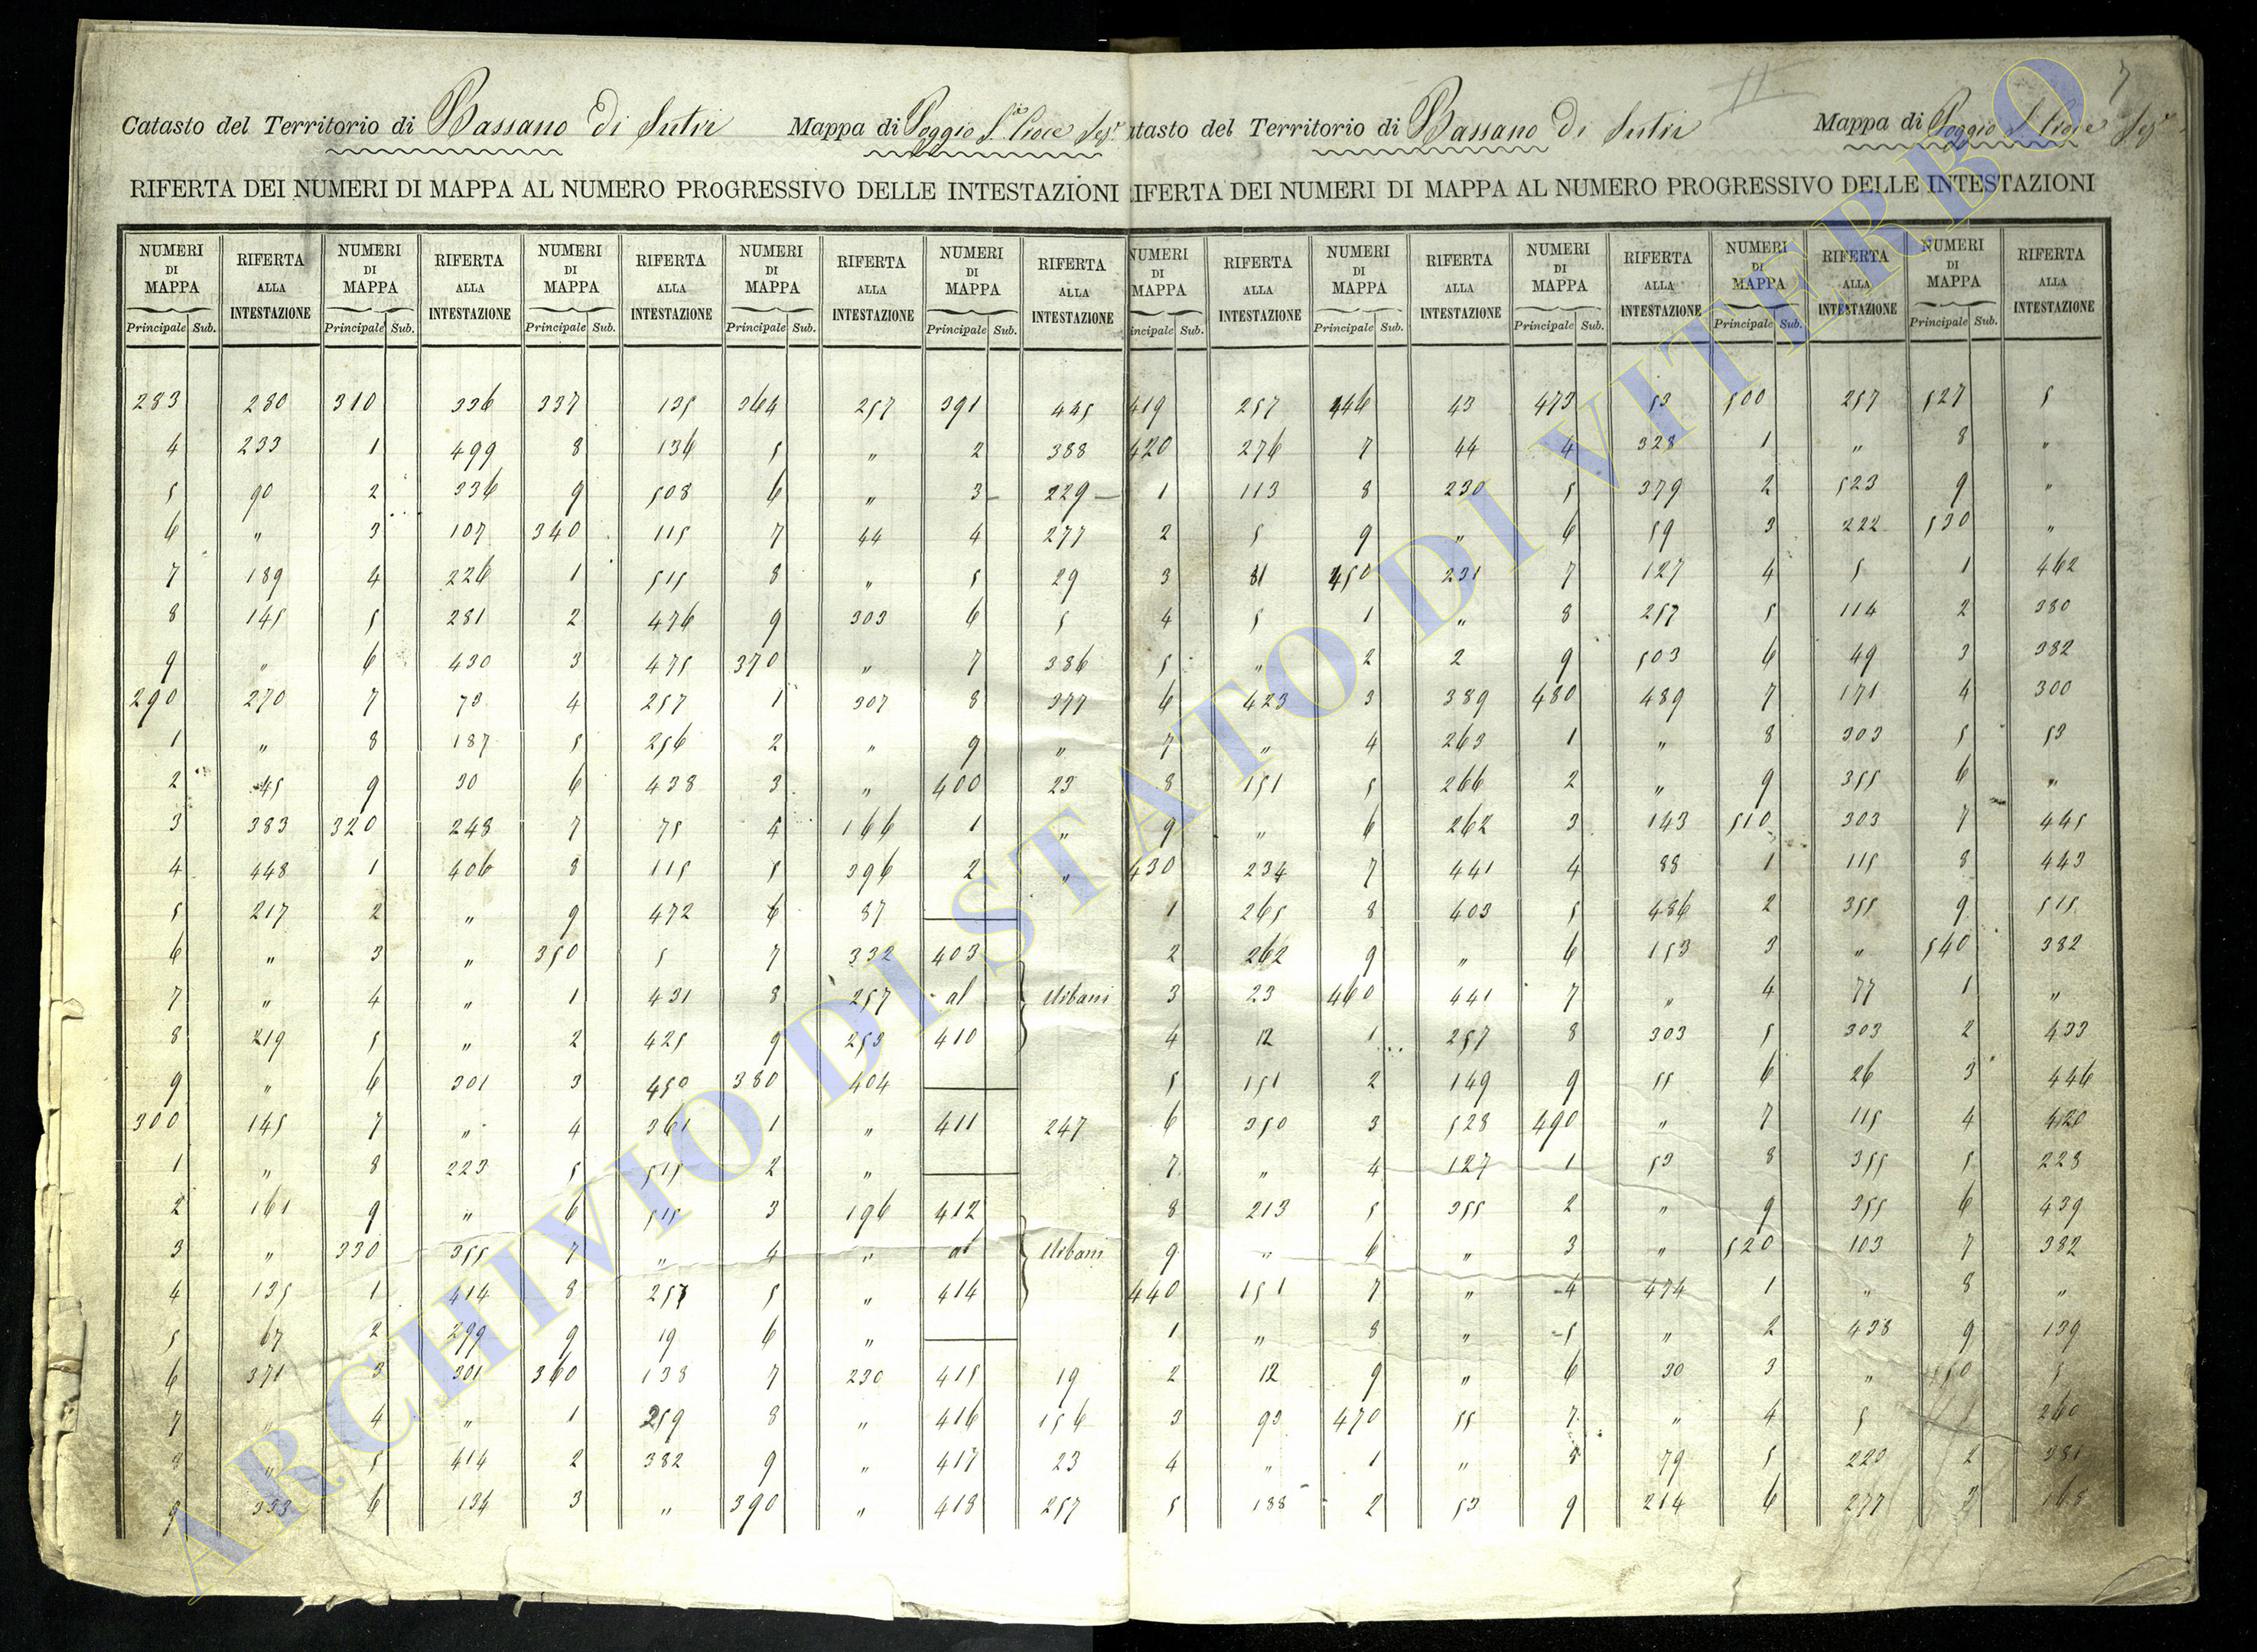 7
Catasto del Territorio di Bassano di Sutri Mappa di Poggio S.
RIFERTA DEI NUMERI DI MAPPA AL NUMERO PROGRESSIVO DELLE INTESTAZIONI
NUMERI DI MAPPA RIFERTA ALLA INTESTAZIONE NUMERI DI MAPPA RIFERTA ALLA INTESTAZIONE NUMERI DI MAPPA RIFERTA ALLA INTESTAZIONE NUMERI DI MAPPA RIFERTA ALLA INTESTAZIONE NUMERI DI MAPPA RIFERTA ALLA INTESTAZIONE
Principale Sub. Principale Sub. Principale Sub. Principale Sub. Principale Sub.
283 280 310 336 337 135 364 257 391 445
4 233 1 499 8 136 5 " 2 388
5 90 2 336 9 508 6 " 3 229
6 " 3 107 340 115 7 44 4 277
7 189 4 226 1 515 8 " 5 29
8 145 5 281 2 476 9 303 6 5
9 " 6 430 3 475 370 " 7 386
290 270 7 73 4 257 1 307 8 377
1 " 8 187 5 256 2 " 9 "
2 45 9 30 6 438 3 " 400 23
3 383 320 248 7 75 4 166 1 "
4 448 1 406 8 115 5 396 2 "
5 217 2 " 9 472 6 87
6 " 3 " 350 5 7 332 403
7 " 4 " 1 431 8 257 al Urbani
8 219 5 " 2 425 9 253 410
9 " 6 301 3 450 380 404
300 145 7 " 4 361 1 " 411 247
1 " 8 223 5 515 2 "
2 161 9 " 6 515 3 196 412
3 " 330 355 7 " 4 " al Urbani
4 135 1 414 8 257 5 " 414
5 67 2 299 9 19 6 "
6 371 3 301 360 138 7 230 415 19
7 " 4 " 1 259 8 " 416 156
8 " 5 414 2 382 9 " 417 23
9 353 6 134 3 " 390 " 418 257
atasto del Territorio di Bassano di Sutri Mappa di Poggio S.
RIFERTA DEI NUMERI DI MAPPA AL NUMERO PROGRESSIVO DELLE INTESTAZIONI
NUMERI DI MAPPA RIFERTA ALLA INTESTAZIONE NUMERI DI MAPPA RIFERTA ALLA INTESTAZIONE NUMERI DI MAPPA RIFERTA ALLA INTESTAZIONE NUMERI DI MAPPA RIFERTA ALLA INTESTAZIONE NUMERI DI MAPPA RIFERTA ALLA INTESTAZIONE
incipale Sub. Principale Sub. Principale Sub. Principale Sub. Principale Sub.
419 257 446 43 473 53 500 257 527 5
420 276 7 44 4 328 1 " 8 "
1 113 8 230 5 379 2 523 9 "
2 5 9 " 6 59 3 222 530 "
3 81 450 231 7 127 4 5 1 462
4 5 1 " 8 257 5 114 2 380
5 " 2 2 9 503 6 49 3 382
6 423 3 389 480 489 7 171 4 300
7 " 4 263 1 " 8 303 5 53
8 151 5 266 2 " 9 355 6 "
9 " 6 262 3 143 510 303 7 445
430 234 7 441 4 88 1 115 8 443
1 265 8 403 5 486 2 355 9 515
2 262 9 " 6 153 3 " 540 382
3 23 460 441 7 " 4 77 1 "
4 12 1 257 8 303 5 303 2 433
5 151 2 149 9 55 6 26 3 446
6 350 3 528 490 " 7 115 4 420
7 " 4 127 1 53 8 355 5 228
8 213 5 355 2 " 9 355 6 439
9 " 6 " 3 " 520 103 7 382
440 151 7 " 4 474 1 " 8 "
1 " 8 " 5 " 2 438 9 139
2 12 9 " 6 30 3 " 550 5
3 93 470 55 7 " 4 5 240
4 " 1 " 8 79 5 220 2 381
5 188 2 53 9 214 6 277 3 168
ARCHIVIO DI STATO DI VITERBO